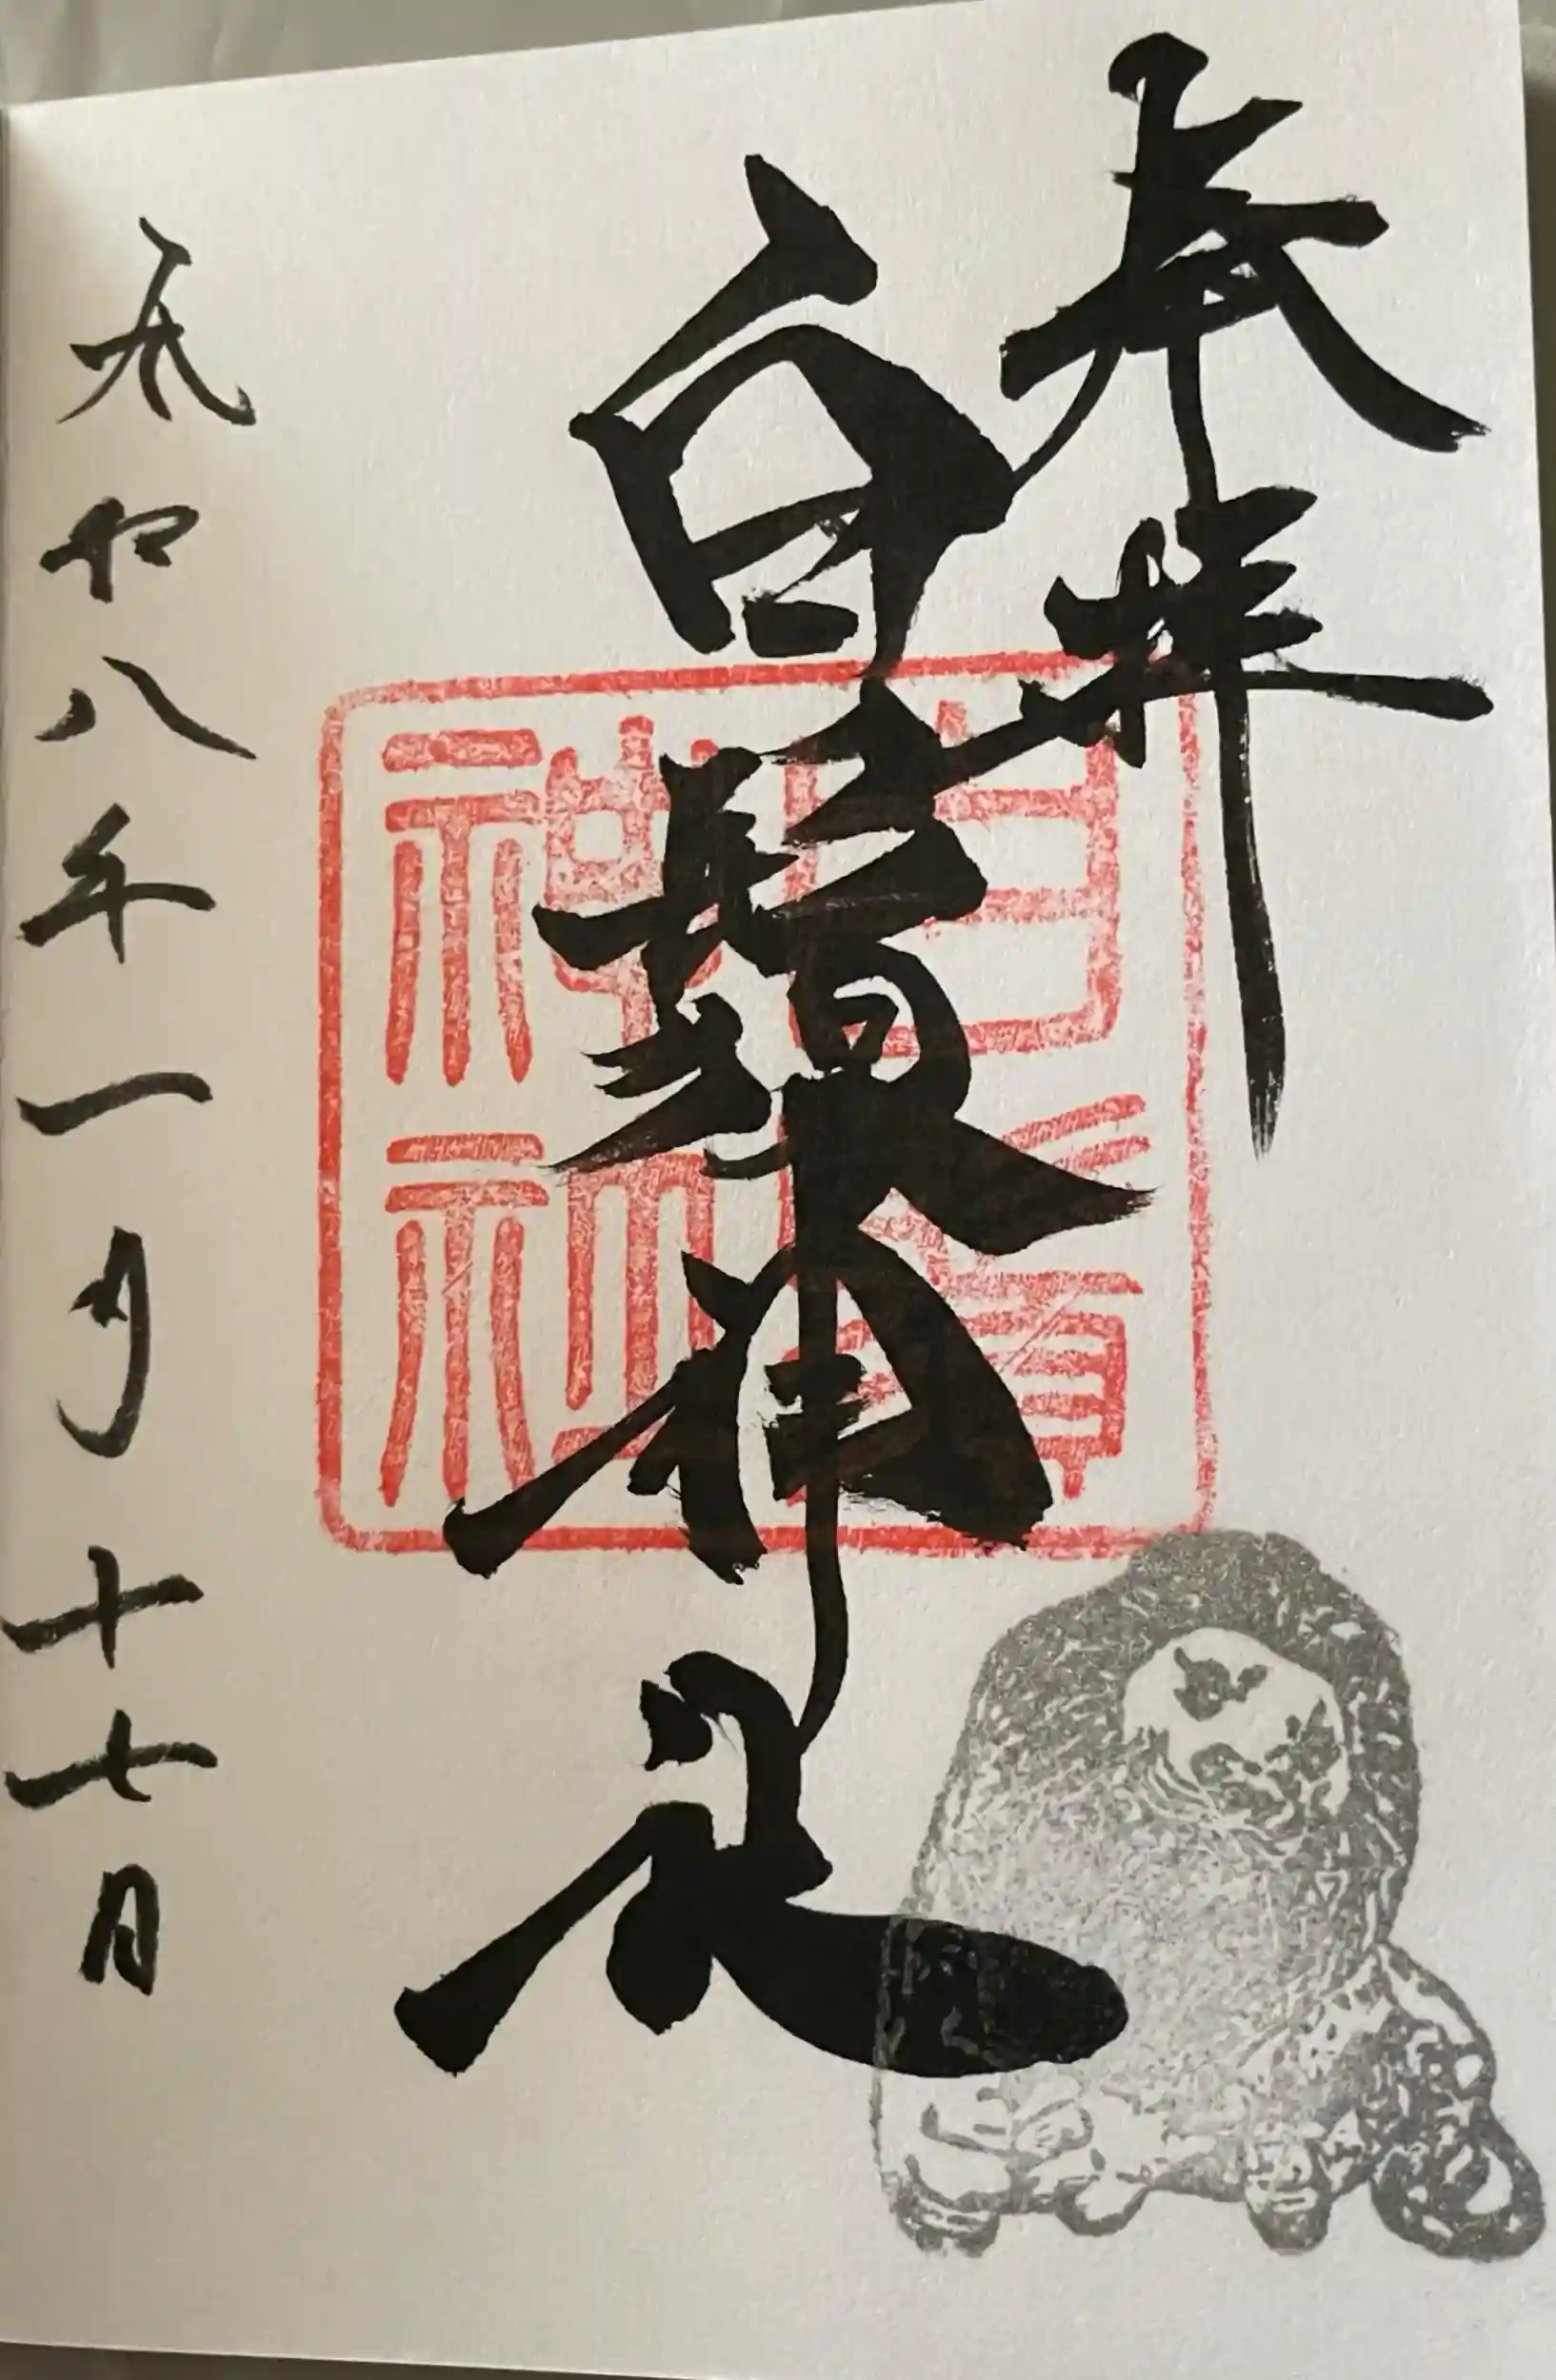 奉拝
白鬚神社
白鬚神社
令和八年一月十七日